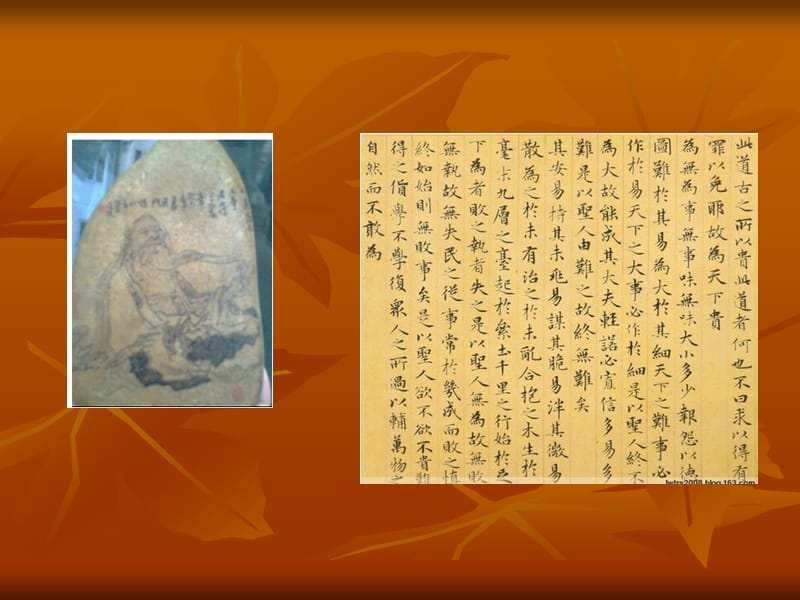 此道古之所以貴此道者何也不曰求以得有
罪以免耶故為天下貴
為無為事無事味無味大小多少報怨以德
圖難於其易為大於其細天下之難事必
作於易天下之大事必作於細是以聖人終不
為大故能成其大夫輕諾必寡信多易多
難是以聖人由難之故終無難矣
其安易持其未兆易謀其脆易泮其微易
散為之於未有治之於未亂合抱之木生於
毫末九層之臺起於絫土千里之行始於足
下為者敗之執者失之是以聖人無為故無敗
無執故無失民之從事常於幾成而敗之慎
終如始則無敗事矣是以聖人欲不欲不貴難
得之貨學不學復眾人之所過以輔萬物之
自然而不敢為